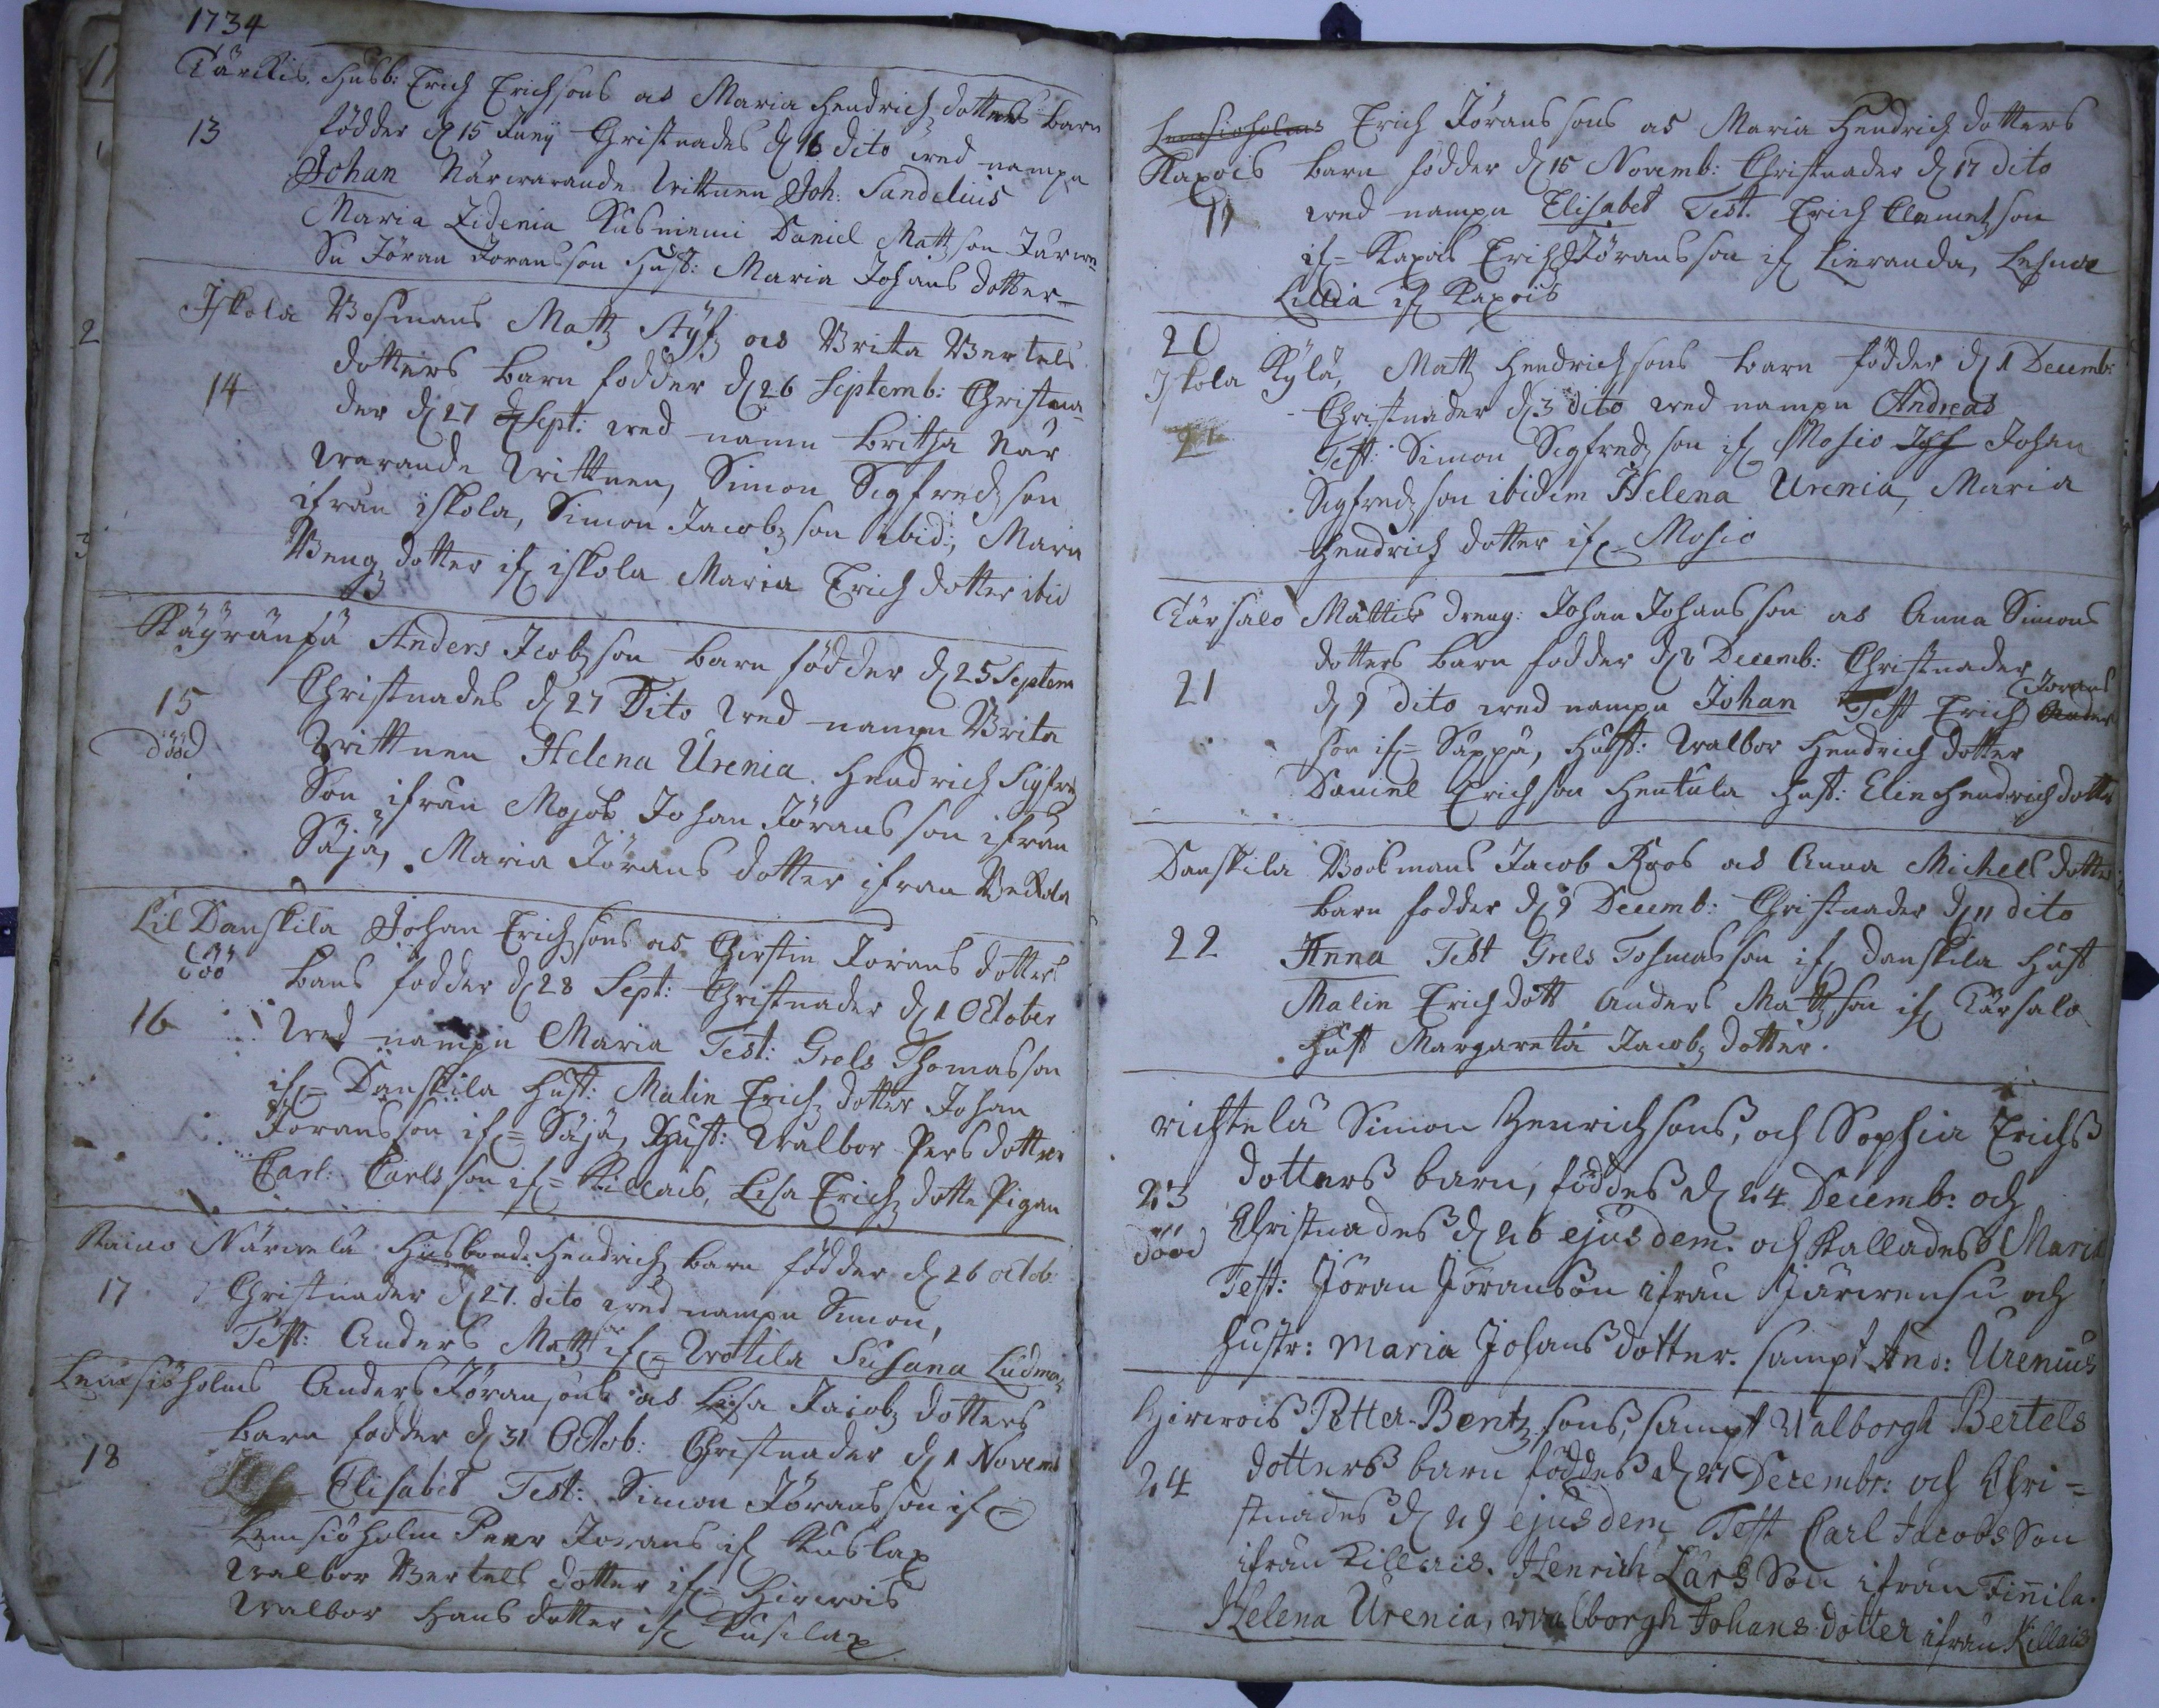 1734
Kärkis. Husb: Erich Erichsons as Maria Hendrich dotters barn
13 födder d 15 Junij Christnades d 16 dito wed nampn
Johan Närwarande Wittnen Joh: Sandelius
Maria Zidenia Kusniemi Daniel Matzson Järwen
Su Jöran Joransson Hust: Maria Johans dotter
Iskola Bosmans Matz Styf as Brita Bertels
dotters barn fodder d 26 Septemb: Christna
14 der d 27 Sept: wed namn Britha När
warande Wittnen, Simon Sigfredzson
ifran iskola, Simon Jacobzson ibid:, Maria
Bengz dotter if iskola Maria Erich dotter ibid
Käÿränpä Anders Jcobzson barn födder d 25 Septem
15 Christnades d 27 Dito wed nampn Brita
dööd Wittnen Helena Urenia. Hendrich Sigfredz
Son ifrån Mojos Johan Jörans son ifrån
Säjä, Maria Jörans dotter ifran Wekkola
Lil Danskila Johan Erichsons as Chirstin Jorans dotters
döö bans fodder d 28 Sept: Christnader d 1 October
16 wed nampn Maria Test: Grels Thomasson
if= Danskila Hust: Malin Erich dotter Johan
Joransson if= Säjä, Hust: Walbor Pers dotter
Carl: Carlsson if= Killais, Lisa Erich dotte Pigan
Raino Närwelä Husbond: Hendrich barn födder d 26 octob:
17 Christnader d 27. dito wed nampn Simon,
Test: Anders Matz if= Wotila Susana Ludma
Lemsiöholms Anders Jöransons as Lisa Jacobz dotters
barn fodder d 31 Octob: Christnader d 1 Novemb
18 Elisabet Test: Simon Jöransson if=
Lemsiöholm Peer Jorans if Kuslax
Walbor Bertels dotter if= Hirwois
Walbor Hans dotter if Kusilax
Lemsioholms Erich Jöranssons as Maria Hendrich dotters
Kapois barn födder d 15 Novemb: Christnader d 17 dito
19 wed nampn Elisabet Test. Erich Clemetzson
if= Kapois Erich Jöransson if Lieranda, Lesnoe
Lillia if Kapois
20
Iskola Kÿlä, Matz Hendrichsons barn födder d 1 Decemb:
Christnader d 3 dito wed nampn Andreas
21 Test: Simon Sigfredzson if Mosio Joh Johan
Sigfredzson ibidem Helena Urenia, Maria
Hendrich dotter if= Mosio
Kärsalo Mattis dreng: Johan Johansson as Anna Simons
dotters barn fodder d 8 Decemb: Christnader
21 d 9 dito wed nampn Johan Test Erich Jorans
son if= Säppä, Hust: Walbor Hendrich dotter
Daniel Erichson Hentula Hust: Elin Hendrich dotter
Danskila Boosmans Jacob Roos as Anna Michels dotter
barn fodder d 9 Decemb: Christnader d 11 dito
22 Anna Test Grels Tohmasson if Danskila Hust
Malin Erich dott Anders Matzson if Kärsalo
Hust Margareta Jacobz dotter.
richtelä Simon Henrichsons, och Sophia Erichs
dotters barn, föddes d 24 Decemb: och
23 Christnades d 26 ejusdem. och Kallades Maria
dööd
Test: Jöran Joranson ifrån Järwensu och
hustr: Maria Johans dotter. sampt And: Urenius
Hirwois Petter Bentzsons, sampt Walborgh Bertels
24 dotters barn föddes d 27 Decembr: och Chri=
stnades d 29 ejusdem Test Carl Jacobs Son
ifrån Killais. Henrich Lars Son ifrån Finnila.
Helena Urenia, walborgh Johans dotter ifrån Killais